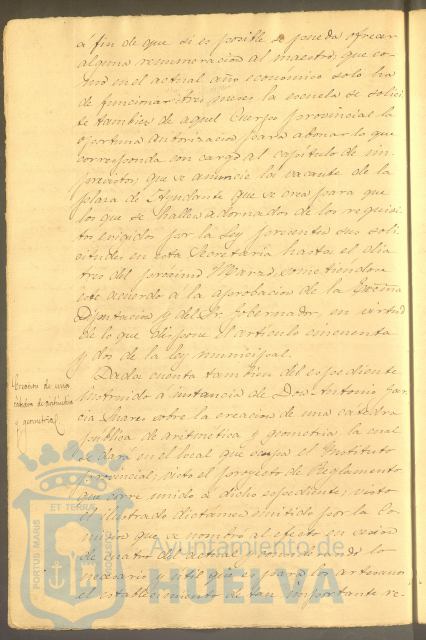 á fin de que si es posible se pueda ofrecer
alguna remuneracion al maestro; que co-
mo en el actual año economico solo ha
de funcionar tres meses la escuela se solici-
te tambien de aquel Cuerpo provincial la
oportuna autorizacion para abonar lo que
corresponda con cargo al capitulo de im-
previstos; que se anuncie la vacante de la
plaza de Ayudante que se crea para que
los que se hallen adornados de los requisi-
tos exigidos por la ley presenten sus soli-
citudes en esta Secretaria hasta el dia
tres del procsimo Marzo, sometiendose
este acuerdo a la aprobacion de la Excma
Diputacion y del Sr. Gobernador, en virtud
de lo que dispone el articulo cincuenta
y dos de la ley municipal.
Creacion de una
cátedra de aritmética
y geometria
Dada cuenta tambien del espediente
instruido á instancia de Don Antonio Gar-
cia sobre la creacion de una catedra
publica de aritmetica y geometria, la cual
se dará en el local que ocupa el Instituto
provincial; visto el proyecto de Reglamento
que corre unido á dicho espediente; visto
el ilustrado dictamen emitido por la Co-
mision que se nombró al efecto en sesion
de cuatro del actual y considerando lo
necesario y util que es para los artesanos
el establecimiento de tan importante re-
PORTUS MARIS
ET TERRAE
CUSTODIA
Ayuntamiento de
HUELVA